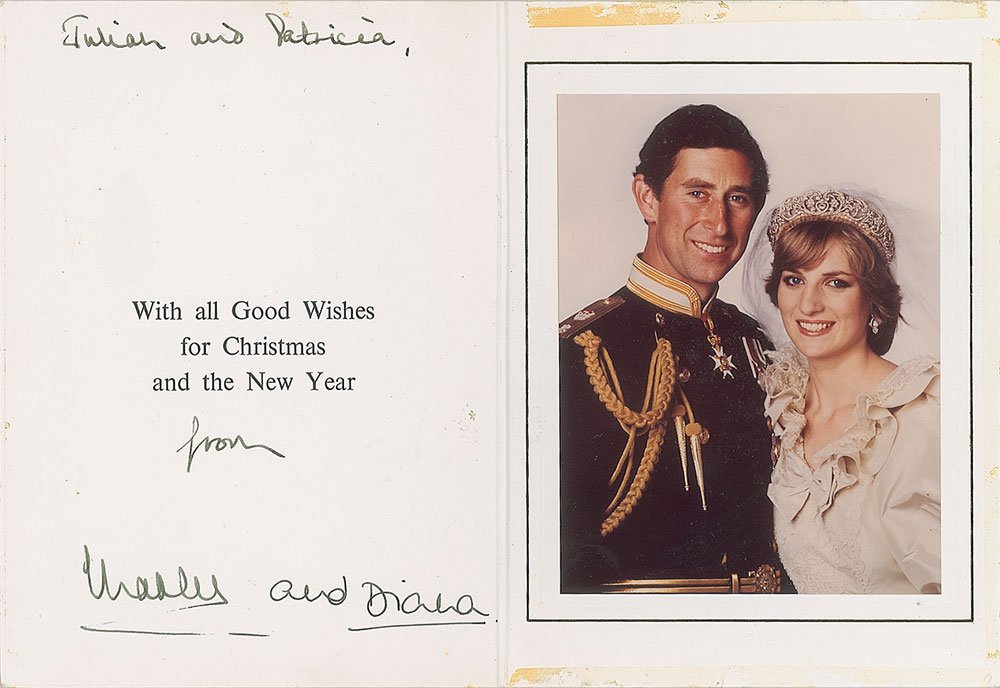 Julian and Patricia,
With all Good Wishes
for Christmas
and the New Year
from
Charles and Diana